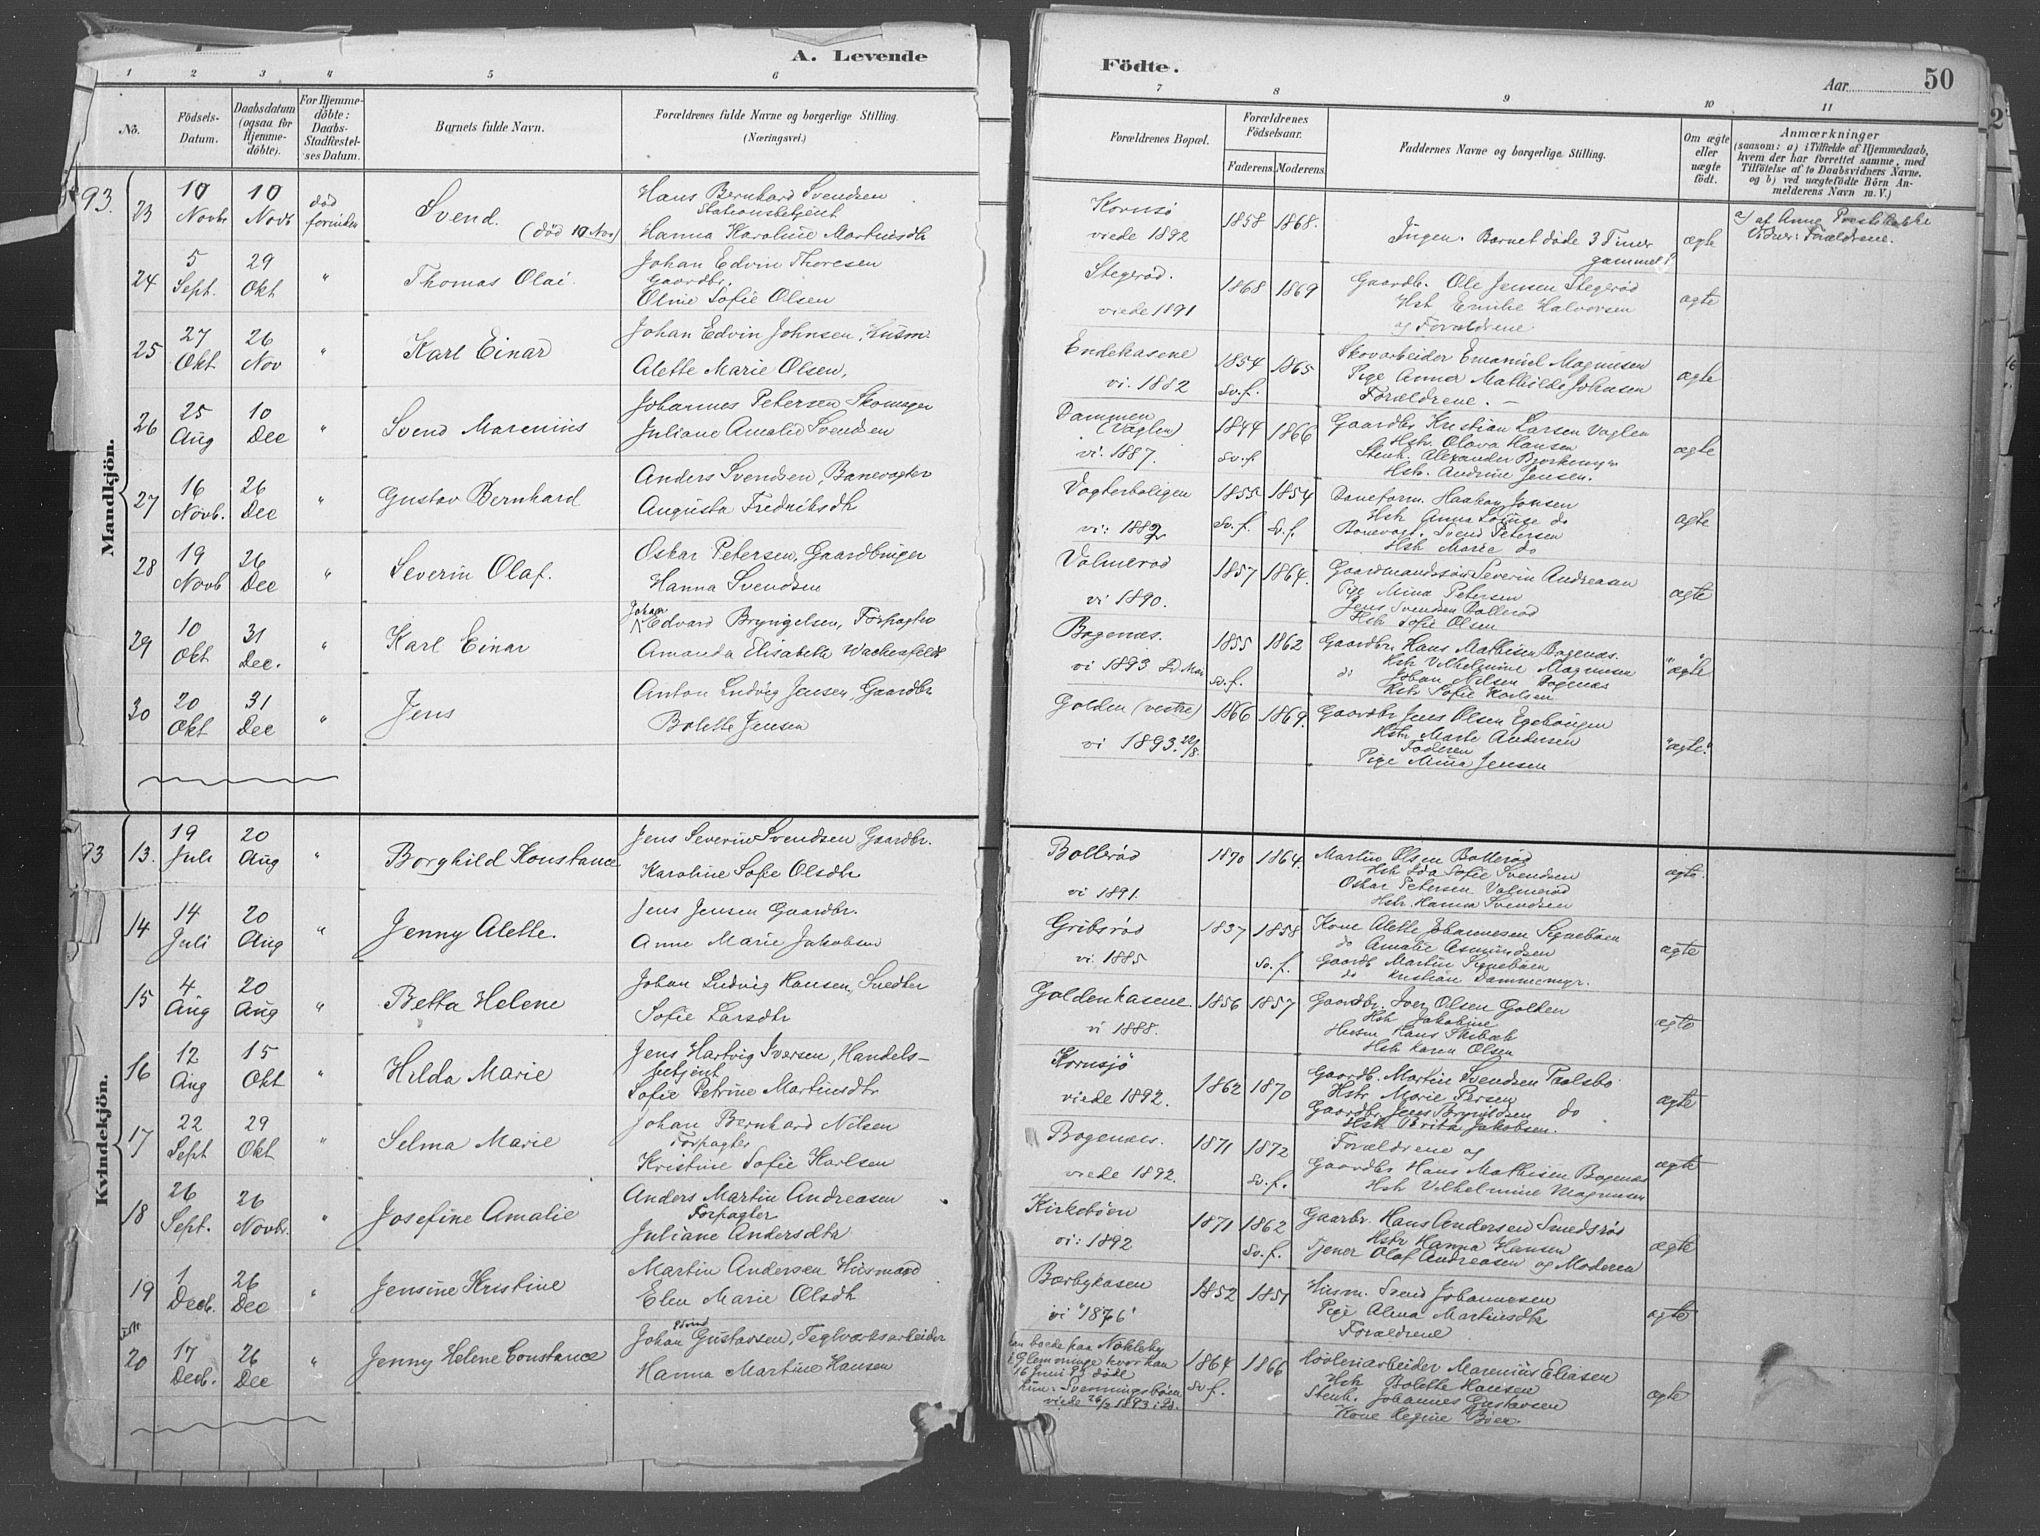 A. Levende
Födte.
Aar
50
1 2 3 4 5 6 7 8 9 10 11
No.
Födsels-
Datum.
Daabsdatum
(ogsaa for
Hjemme-
döbte).
For Hjemme-
döbte:
Daabs-
Stadfæstel-
ses Datum.
Barnets fulde Navn.
Forældrenes fulde Navne og borgerlige Stilling.
(Næringsvei.)
Forældrenes Bopæl.
Forældrenes
Födselsaar.
Faderens. Moderens.
Faddernes Navne og borgerlige Stilling.
Om ægte
eller
uægte
födt.
Anmærkninger
(saasom: a) i Tilfælde af Hjemmedaab,
hvem der har forrettet samme, med
Tilföielse af to Daabsvidners Navne.
og b) ved uægtefödte Börn An-
melderens Navn m. V.)
Mandkjön.
93.
23
10 Novbr
10 Novb
død forinden
Svend.
(død 10 Nov)
Hans Bernhard Svendsen
Stationsbetjent
Hanna Karoline Martinsdtr
Kornsø
viede 1892
1858 1868.
Ingen. Barnet døde 3 Timer
gammel
ægte
a) af Anne
Vidner: Forældrene.
24
5 Sept.
29 Okt
"
Thomas Olai
Johan Edvin Thoresen
Gaardbr.
Oline Sofie Olsen
Stegerød.
viede 1891
1868 1869
Gaardb. Ole Jensen Stegerød
Hst Emilie Halvorsen
og Forældrene
ægte
25
27 Okt
26 Nov
"
Karl Einar
Johan Edvin Johnsen, Husm
Alette Marie Olsen,
Endekasene
vi. 1882
1854 1865
Sv.f.
Skovarbeider Emanuel Magnusen
Pige Anna Mathilde Johnsen
Forældrene. —
ægte
26
25 Aug
10 Dec
"
Svend Marenius
Johannes Petersen Skomager
Juliane Amalie Svendsen
Dammen
(Vaglen)
vi. 1887.
1844 1866
Sv.f
Gaardbr Kristian Larsen Vaglen
Hstr. Olava Hansen
Stenh. Alexander
Hstr. Andrine Jensen.
ægte
27
16 Novb.
26 Dec
"
Gustav Bernhard
Anders Svendsen, Banevogter
Augusta Fredriksdtr
Vogterboligen
1855 1854
Sv.f. Sv.f.
Baneform. Haakon Jonsen
Hstr Anna Lovise do
Banevogt. Svend Petersen
Hstr Marie do
ægte
28
19 Novb
26 Dec
"
Severin Olaf.
Oskar Petersen, Gaardbruger
Hanna Svendsen
Valmerød
vi 1890.
1857 1864.
Gaardmandssøn Severin Andreasen
Pige Mina Petersen
Jens Svendsen Bollerød
Hstr Sofie Olsen
ægte
29
10 Okt
31 Dec.
"
Karl Einar
Johan
Edvard Bryngelsen, Forpagter
Amanda Elisabeth Wachenfeldt
Bogenæs.
vi 1893
1855 1862
Sv.f.
Gaardbr Hans Mathisen Bogenæs.
Hstr Vilhelmine Magnusen
do Johan Nilsen Bogenæs
Hstr Sofie Karlsen
"ægte"
30
20 Okt
31 Dec
"
Jens
Anton Ludvig Jensen, Gaardbr
Bolette Jensen
Golden (vestre)
vi 1893. 22/8.
1866 1869.
Gaardbr Jens Olsen
Hstr Marte Andersen
Faderen
Pige Anna Jensen
"ægte."
Kvindekjön.
93
13.
19 Juli
20 Aug
"
Borghild Konstance
Jens Severin Svendsen Gaardbr.
Karoline Sofie Olsdtr
Bollerød
vi 1891.
1870 1864.
Martin Olsen Bollerød
Hstr Ida Sofie Svendsen
Oskar Petersen Valmerød
Hstr. Hanna Svendsen
ægte.
14
14 Juli
20 Aug
"
Jenny Alette.
Jens Jensen Gaardbr.
Anne Marie Jakobsen
Gribsrød
vi. 1885
1837 1858
Sv.f.
Kone Alette Johannesen Signebøen
do Amalie Asmundsen
Gaardb Martin Signebøen
do Kristian Dammemyr.
ægte
15
4 Aug
20 Aug
"
Betta Helene
Johan Ludvig Hansen, Snedker
Sofie Larsdtr
Goldenkasene
vi 1888.
1856 1857
Gaardbr. Iver Olsen Golden
Hstr Jakobine
Husm Hans Skibæk
Hstr Karen Olsen
ægte
16
12 Aug
15 Okt
"
Hilda Marie
Jens Hartvig Iversen, Handels-
betjent
Sofie Petrine Martinsdtr
Kornsjø
viede 1892.
1862 1870
Gaardb. Martin Svendsen Paalsbo
Hstr Marie Persen
Gaardbr Jens Brynildsen do
Hstr Brita Jakobsen.
ægte
17
22 Sept
29 Okt
"
Selma Marie
Johan Bernhard Nilsen
Forpagter
Kristine Sofie Karlsen
Bogenæs.
viede 1892.
1871 1872
Sv.f.
Forældrene og
Gaardbr Hans Mathisen Bogenæs
Hstr Vilhelmine Magnusen
ægte
18
26 Sept.
26 Novbr.
"
Josefine Amalie
Anders Martin Andreasen
Forpagter
Juliane Andersdtr
Kirkebøen
vi: 1892
1871 1862
Sv.f.
Gaarbr. Hans Andersen Smedsrød
Hstr Hanna Hansen
Tjener Olaf Andreasen og Moderen
ægte
19
1 Decb.
26 Dec
"
Jensine Kristine
Martin Andersen Husmand
Elen Marie Olsdtr
Bærbykasen
vi 1876
1852 1851
Husm. Svend Johannesen
Pige Alma Martinsdtr
Forældrene
ægte
20
17 Decb.
26 Dec
"
Jenny Helene Constance
Johan Gustavsen, Teglværksarbeider
Hanna Martine Hansen
han boede paa Nokleby
i Glemminge hvor han
16 Juni 93 døde
hun: Svenningsbøen
viede 26/2 1893 i
1864 1866
Sv.f.
Høvleriarbeider Marenius Eliasen
Hstr Bolette Hansen
Stenh. Johannes Gustavsen
Kone Regine Bøer.
ægte